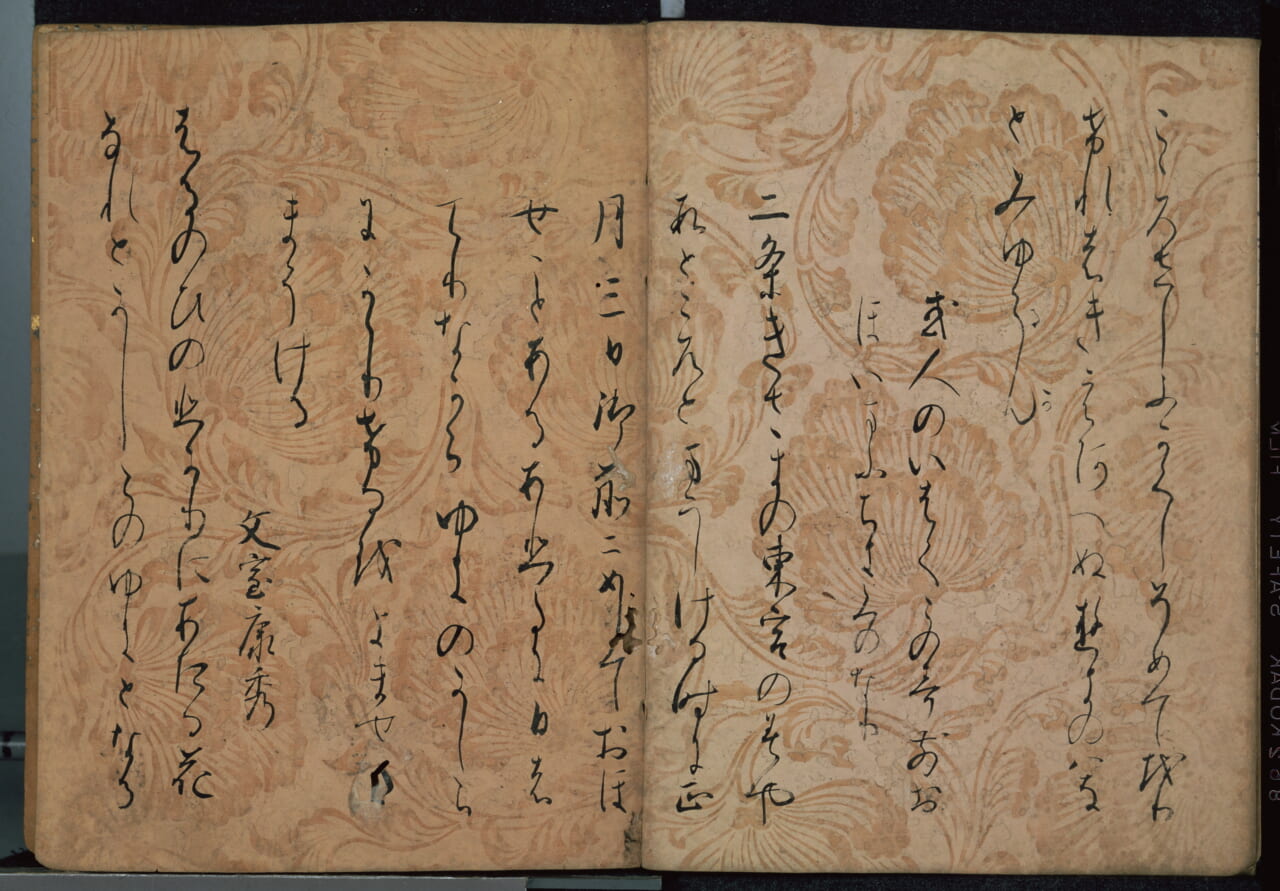 こゝろさしふかくしそめてをり
けれはきえあへぬ雪のはな
とみゆらん
か
或人のいはくこの哥前お
ほいまうちきみのなり
二条きさきの東宮のみや
すところとまうしける時に正
月三日御前にめしておほ
せことあるあひたに日は
てりなからゆきのかしら
にかゝりけるをよませた
まうける
文室康秀
はるのひのひかりにあたる花
なれとかしらのゆきとなる